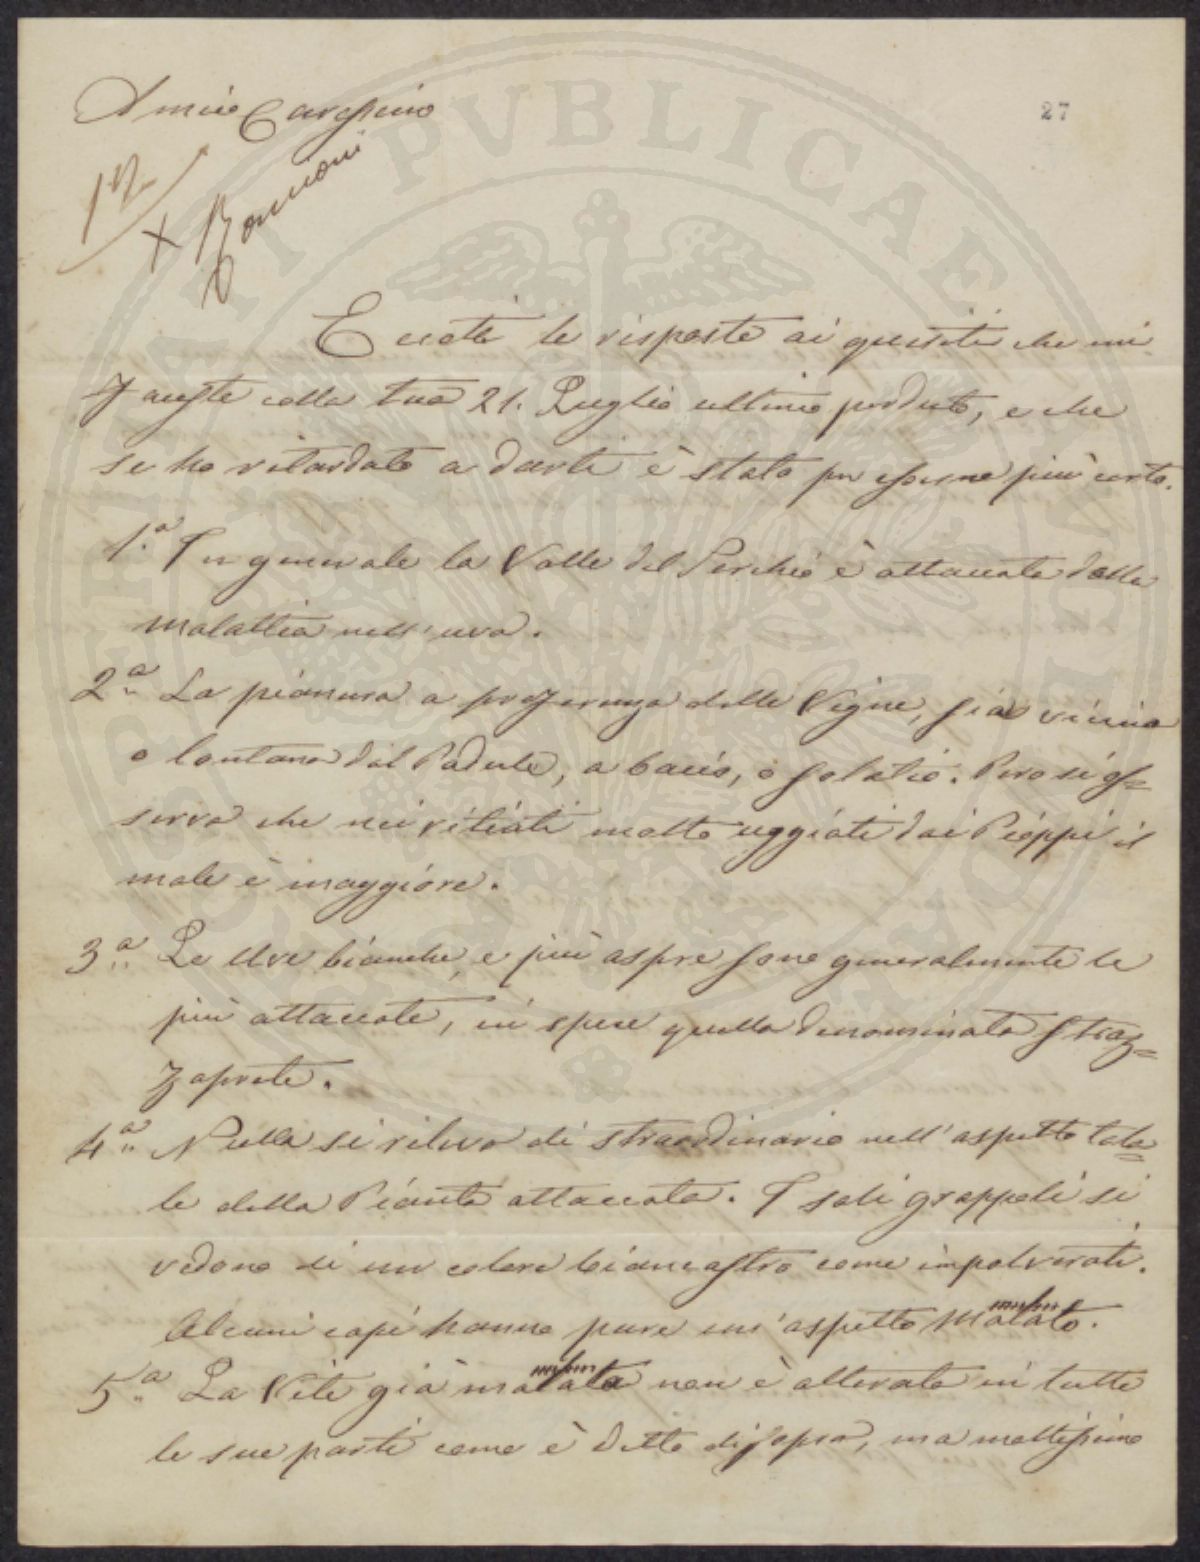 Amico Carissimo
27
12
X Bonnoni
Eccoti le risposte ai quesiti che mi
faceste colla tua 21. Luglio ultimo perduto, e che
se ho ritardato a darti è stato per esserne più certo.
1.a In generale la Valle del Serchio è attaccata dalla
malattia nell'uva.
2.a La pianura a preferenza delle Vigne, sia vicino
o lontano dal Padule, a bacìo, o solatìo. Però si os=
serva che nei vitiati molto uggiati dai Pioppi il
male è maggiore.
3.a Le Uve bianche, e più aspre sono generalmente le
più attaccate, in specie quella denominata Straz=
zaprete.
4.a Nulla si rileva di straordinario nell'aspetto tota=
le della Pianta attaccata. I soli grappoli si
vedono di un colore biancastro come impolverati.
Alcuni capi hanno pure un'aspetto malato.
5.a La Vite già malata non è alterata in tutte
le sue parti come è detto disopra, ma moltissimo